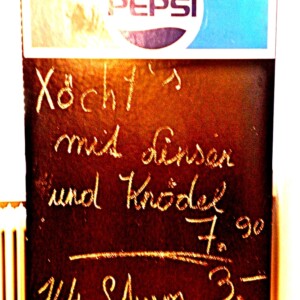 PEPSI
Xöcht's
mit Linsen
und Knödel
7.90
1/4 Sturm 3-